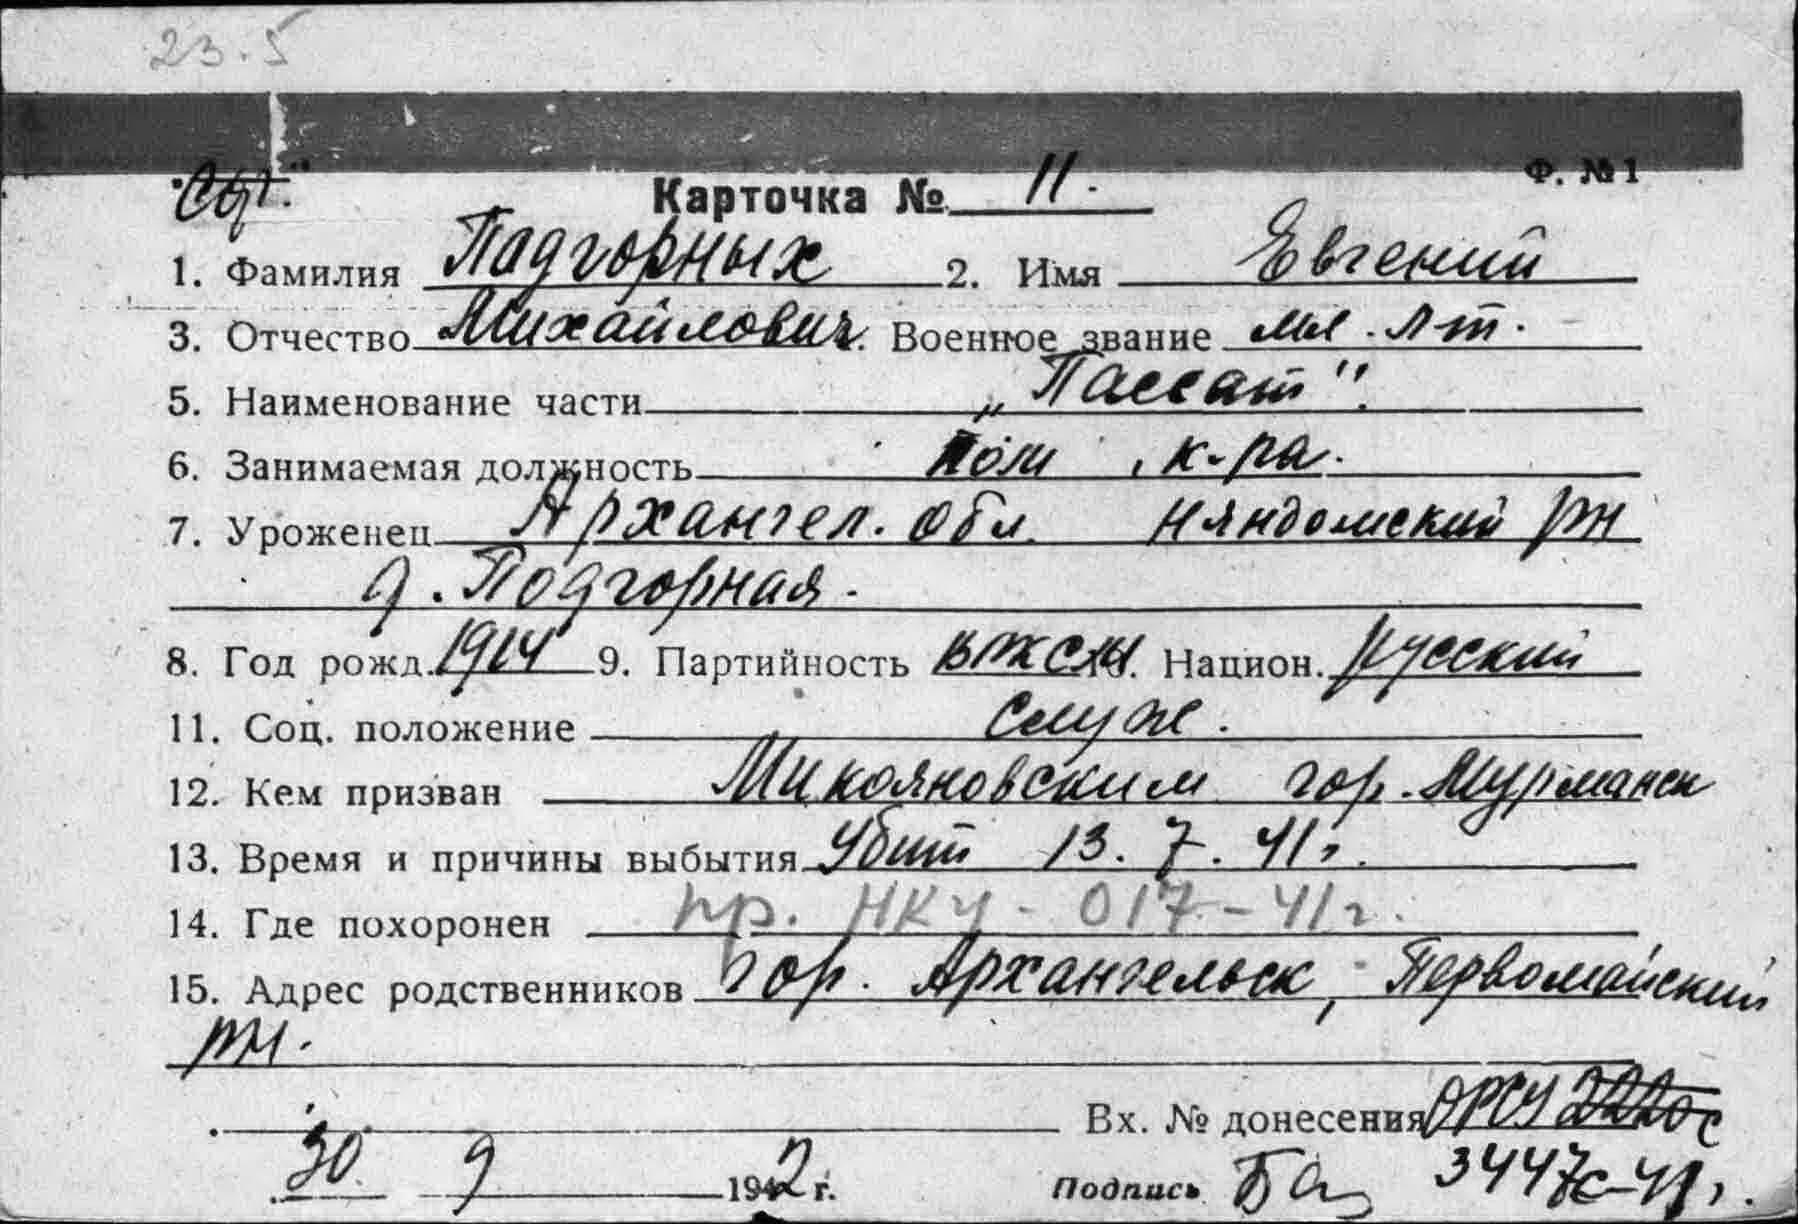 23.5
Ф. №1
Карточка № 11.
1. Фамилия Падгорных 2. Имя Евгений
3. Отчество Михайлович. Военное звание мл. л-т.
5. Наименование части „Пассат".
6. Занимаемая должность пом. к-ра.
7. Уроженец Архангел. обл. Няндомский рн
д. Подгорная.
8. Год рожд. 1914 9. Партийность ВЛКСМ 10. Национ. русский
11. Соц. положение служ.
12. Кем призван Микояновским гор. Мурманск
13. Время и причины выбытия Убит 13.7.41г.
14. Где похоронен пр. НКУ - 017-41г.
15. Адрес родственников гор. Архангельск, Первомайский
рн.
Вх. № донесения ОРСУ
30 9 1942 г. Подпись 3447с-41г.